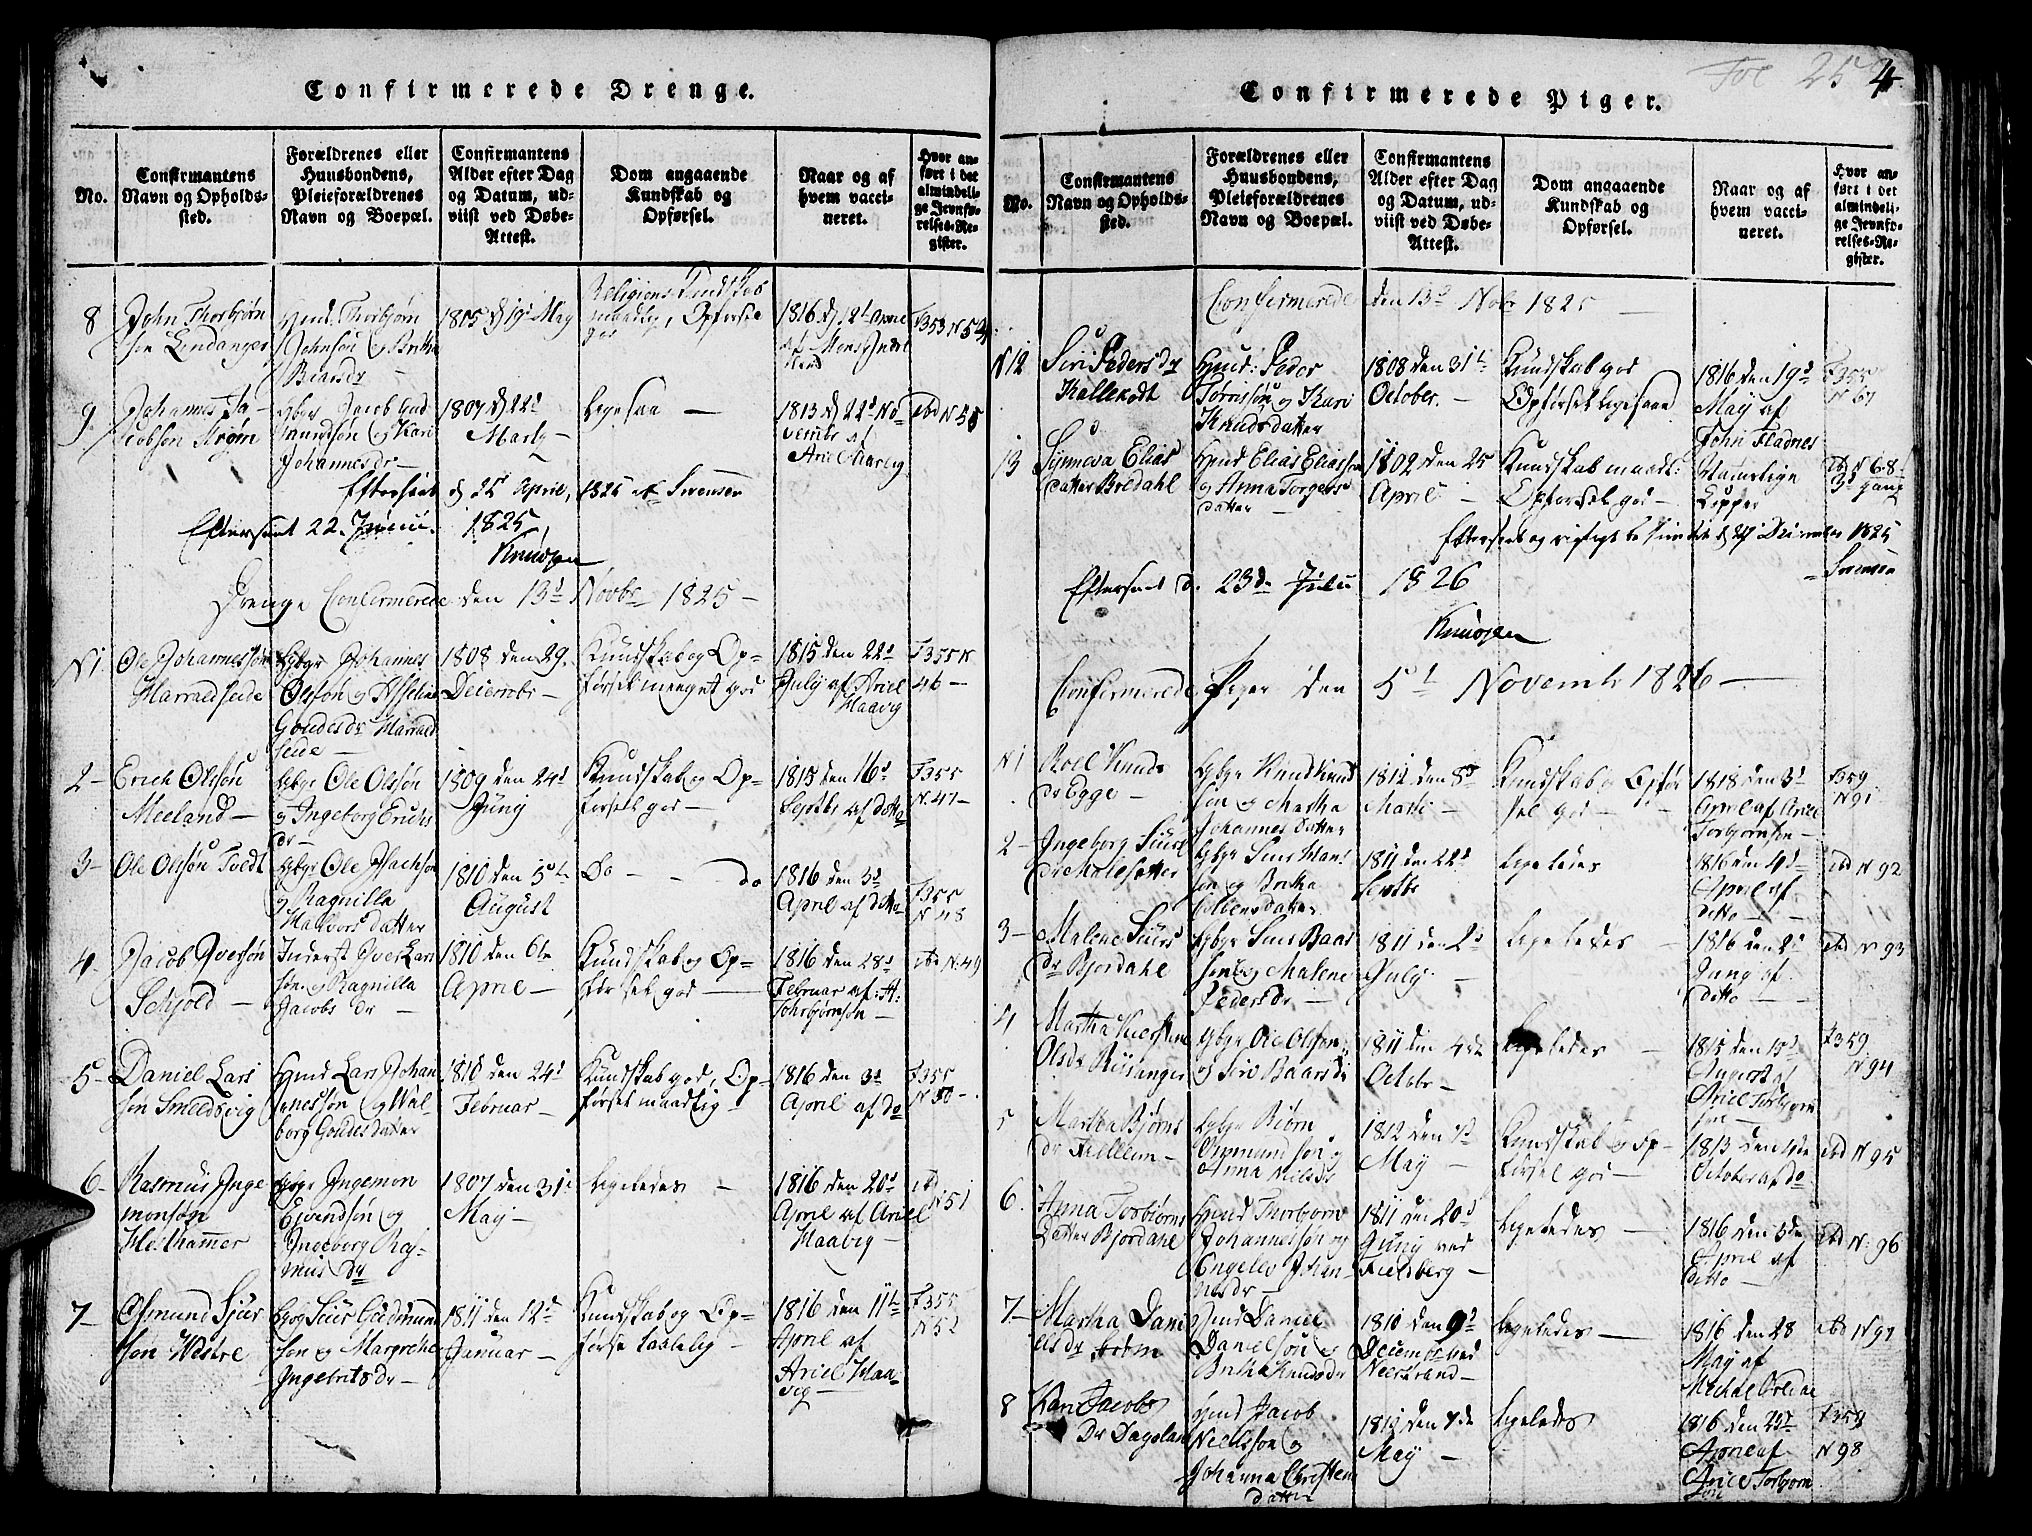 Confirmerede Drenge.
No.
Confirmantens
Navn og Opholds-
sted.
Forældrenes eller
Huusbondens,
Pleieforældrenes
Navn og Boepæl.
Confirmantens
Alder efter Dag
og Datum, ud-
viist ved Døbe-
Attest.
Dom angaaende
Kundskab og
Opførsel.
Naar og af
hvem vacci-
neret.
Hvor an-
ført i det
almindeli-
ge Jevnfø-
relses-Re-
gister.
8
John Thorbjørn
søn
Thorbjørn
Johnsøn og Britha
1805 d 19d May
Religions Kundskab
maadelig, Opførsel
god
1816 d
F353 N 54
9
Johannes Ja-
cobsøn Strøm
Jacob
og Kari
Johannesdr
1807 d 22d
Martz
Ligesaa
1813 d 22d No
vembr af
Ariel Haavig
ibd N 55
Efterseet d 25 April, 1825 af Svensen
Efterseet 22. Junii. 1825,
Knudzen
Drenge Confirmerede den 13d Novbr 1825
N 1
Ole Johannessøn
Harraldseide
Gbgr Johannes
Olssøn og
Harrald
seide
1808 den 29.
Decembr
Kundskab og Op-
førsel meget god
1815 den 22d
July af Ariel
Haavig
F355 N
46
2
Erich Olssøn
Meeland
Gbgr Ole Olssøn
og Ingeborg Erichs
dr
1809 den 24d
Juny
Kundskab og Op-
førsel god
1815 den 16d
Septbr af ditto
F355
N. 47
3
Ole Olssøn Tvedt
Gbgr Ole
og Ragnilla
Halvorsdatter
1810 den 5te
August
Do - - do
1816 den 3d
April af ditto
F355
N 48
4
Jacob Iversøn
Schjold
Inderst Iver Lars
søn og Ragnilla
Jacobs dr
1810 den 6te
April
Kundskab og Op-
førsel god
1816 den 28d
Februar af A.
Torbjørnsøn
ibd N. 49
5
Daniel Lars
søn Smedsvig
Hmd Lars Johan
nessøn og Wal
borg Goudesdatter
1810 den 24d
Februar
Kundskab god, Op-
førsel maadlig
1816 den 3d
April af do
F355
N 50
6
Rasmus Inge
monsøn
Hesthammer
Gbgr Ingemon
Eivendsøn og
Ingeborg Ras-
mus dr
1807 den 31te
May
Ligeledes
1816 den 20d
April af Ariel
Haavig
ibd
N 51
7
Osmund Sjur
søn Westre
Gbgr Siur Gudmund
søn og Margrethe
Ingebrits dr
1811 den 12d
Januar
Kundskab og Op-
førsel taalelig
1816 den 11te
April af
Ariel Haa-
vig
F355
N 52
Fol 25 4
Confirmerede Piger.
No.
Confirmantens
Navn og Opholds-
sted.
Forældrenes eller
Huusbondens,
Pleieforældrenes
Navn og Boepæl.
Confirmantens
Alder efter Dag
og Datum, ud-
viist ved Døbe-
Attest.
Dom angaaende
Kundskab og
Opførsel.
Naar og af
hvem vacci-
neret.
Hvor an-
ført i det
almindeli-
ge Jevnfø-
relses-Re-
gister.
Confirmerede den 13d Nobr 1825
N 12
Siri Peders dr
Kallekodt
Hmd: Peder
og Kari
Knudsdatter
1808 den 31te
October.
Kundskab god
Opførsel ligesaa
1816 den 19d
May af
John Fladnes
F355
N 67
13
Synneva Elias
datter Bredahl
Hmd Elias Eliassøn
og Anna Torgers
datter
1802 den 25
April
Kundskab maadl:
Opførsel god
Naturlige
Kopper
ibd N 68
3d gang
Efterseet og rigtigt befundet d 27 December 1825
Svensen
Efterseet d. 23de Julii 1826
Knudzen
Confirmerede Piger den 5te Novembr 1826
N 1
Roel Knuds
dr Egge
Gbgr Knud Knud
søn og Martha
Johannes datter
1812 den 8d
Marti
Kundskab og Opfør
sel god
1818 den 3d
April af Ariel
Torbjørnsøn
F359
N 91
2
Ingeborg Siurs
dr
Gbgr Siur Han
søn og Britha
1811 den 22d
Septbr
Ligeledes
1816 den 4d
April af
ditto
ibd N 92
3
Malene Siurs
dr Bjordahl
Gbgr Siur Baar
søn og Malene
Pedersdr
1811 den 2d
July
Ligeledes
1816 den 2d
Juny af
ditto
ibd N 93
4
Martha Kierstine
Olsdr Risvanger
Gbgr Ole Olsøn
og Siri Baarsdr
1811 den 4de
Octobr
Ligeledes
1815 den 15d
August af
Ariel Torbjørn
søn
F359
N 94
5
Martha Bjørns
dr
Gbgr Biørn
Osmundsøn og
Anna Nielsdr
1812 den 7d
May
Kundskab og Op-
førsel god
1813 den 4de
October af do
ibd N 95
6.
Anna Torbiørns
datter Bjordahl
Hmd Thorbjørn
Johannessøn og
Engelev Johan-
nesdr
1811 den 20d
Juny ved
Fieldberg
Ligeledes
1816 den 3de
April af
ditto
ibd N: 96
7
Martha Dani
elsdr Strøm
Hmd Daniel
Danielsøn og
Britha Knudsdr
1810 den 9d
Decemb ved
Neerstrand
Ligeledes
1816 den 28
May af
Michal
ibd N 97
8
Kari Jacobs
Dr Dagsland
Hmd Jacob
Nielssøn og
Johanna Christens
datter
1812 den 7de
May
Ligeledes
1816 den 25d
April af
Ariel Torbjørn
søn
F359
N 98